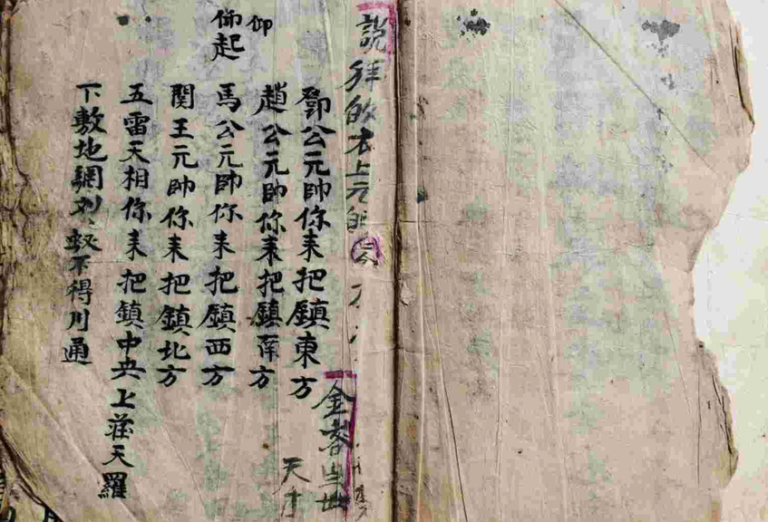 說拜的本上元
金
天
鄧公元帥你来把鎮東方
趙公元帥你来把鎮南方
仰
起
馬公元帥你来把鎮西方
関王元帥你来把鎮北方
五雷天相你来把鎮中央上莊天羅
下敷地網不得川通